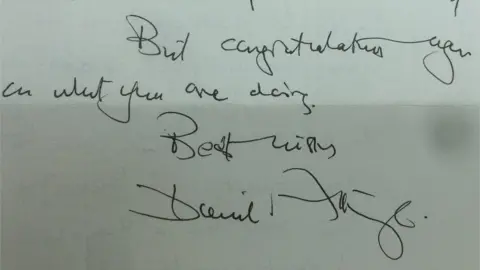 But congratulations again
on what you are doing.
Best wishes
Daniel